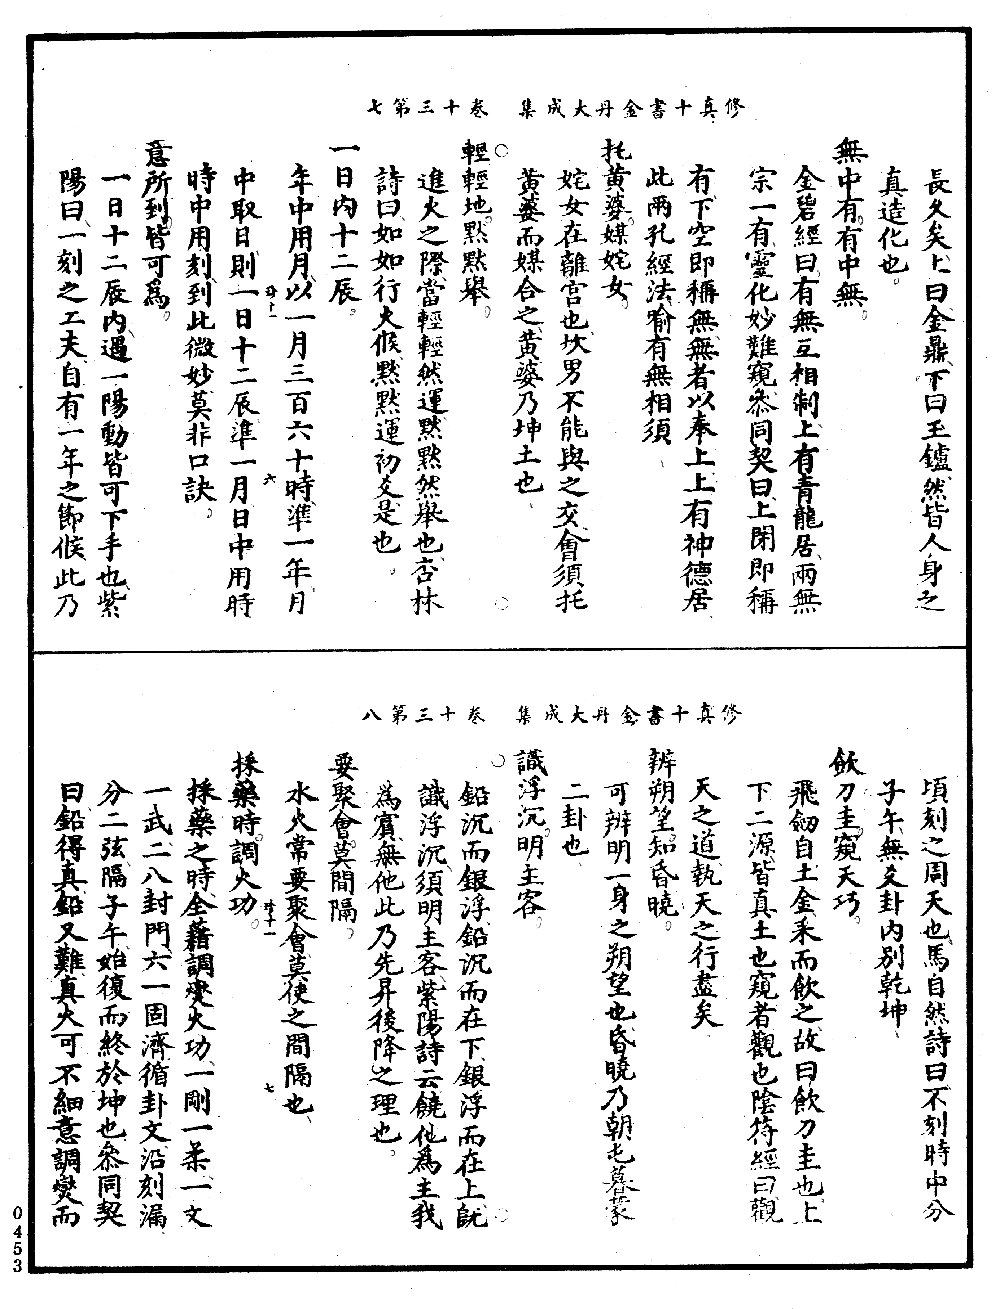 修真十書金丹大成集　卷十三第七
長久矣上曰金鼎下曰玉鑪然皆人身之
真造化也
無中有有中無。
金碧經曰有無互相制上有青龍居兩無
宗一有靈化妙難窺叅同契曰上閉即稱
有下空即稱無無者以奉上上有神德居
此兩孔經法喻有無相須
托黃婆媒姹女。
姹女在離宮也坎男不能與之交會須托
黃婆而媒合之黃婆乃坤土也
輕輕地默默舉。
進火之際當輕輕然運默默然舉也杏林
詩曰如如行火候默默運初爻是也。
一日內十二辰。
年中用月以一月三百六十時準一年月
中取日則一日十二辰準一月日中用時
時中用刻到此微妙莫非口訣。
意所到皆可爲。
一日十二辰內遇一陽動皆可下手也紫
陽曰一刻之工夫自有一年之節候此乃
修真十書金丹大成集　卷十三第八
頃刻之周天也馬自然詩曰不刻時中分
子午無爻卦內別乾坤
飲刀圭窺天巧。
飛劒自土金釆而飲之故曰飲刀圭也上
下二源皆真土也窺者觀也陰符經曰觀
天之道執天之行盡矣
辨朔望知昏曉。
可辨明一身之朔望也昏曉乃朝屯暮蒙
二卦也
識浮沉明主客。
鉛沉而銀浮鉛沉而在下銀浮而在上旣
識浮沉須明主客紫陽詩云饒他爲主我
爲賓無他此乃先昇後降之理也。
要聚會莫間隔。
水火常要聚會莫使之間隔也
採藥時調火功。
採藥之時全藉調燮火功一剛一柔一文
一武二八封門六一固濟循卦文沿刻漏
分二弦隔子午始復而終於坤也叅同契
曰鉛得真鉛又難真火可不細意調燮而
0453